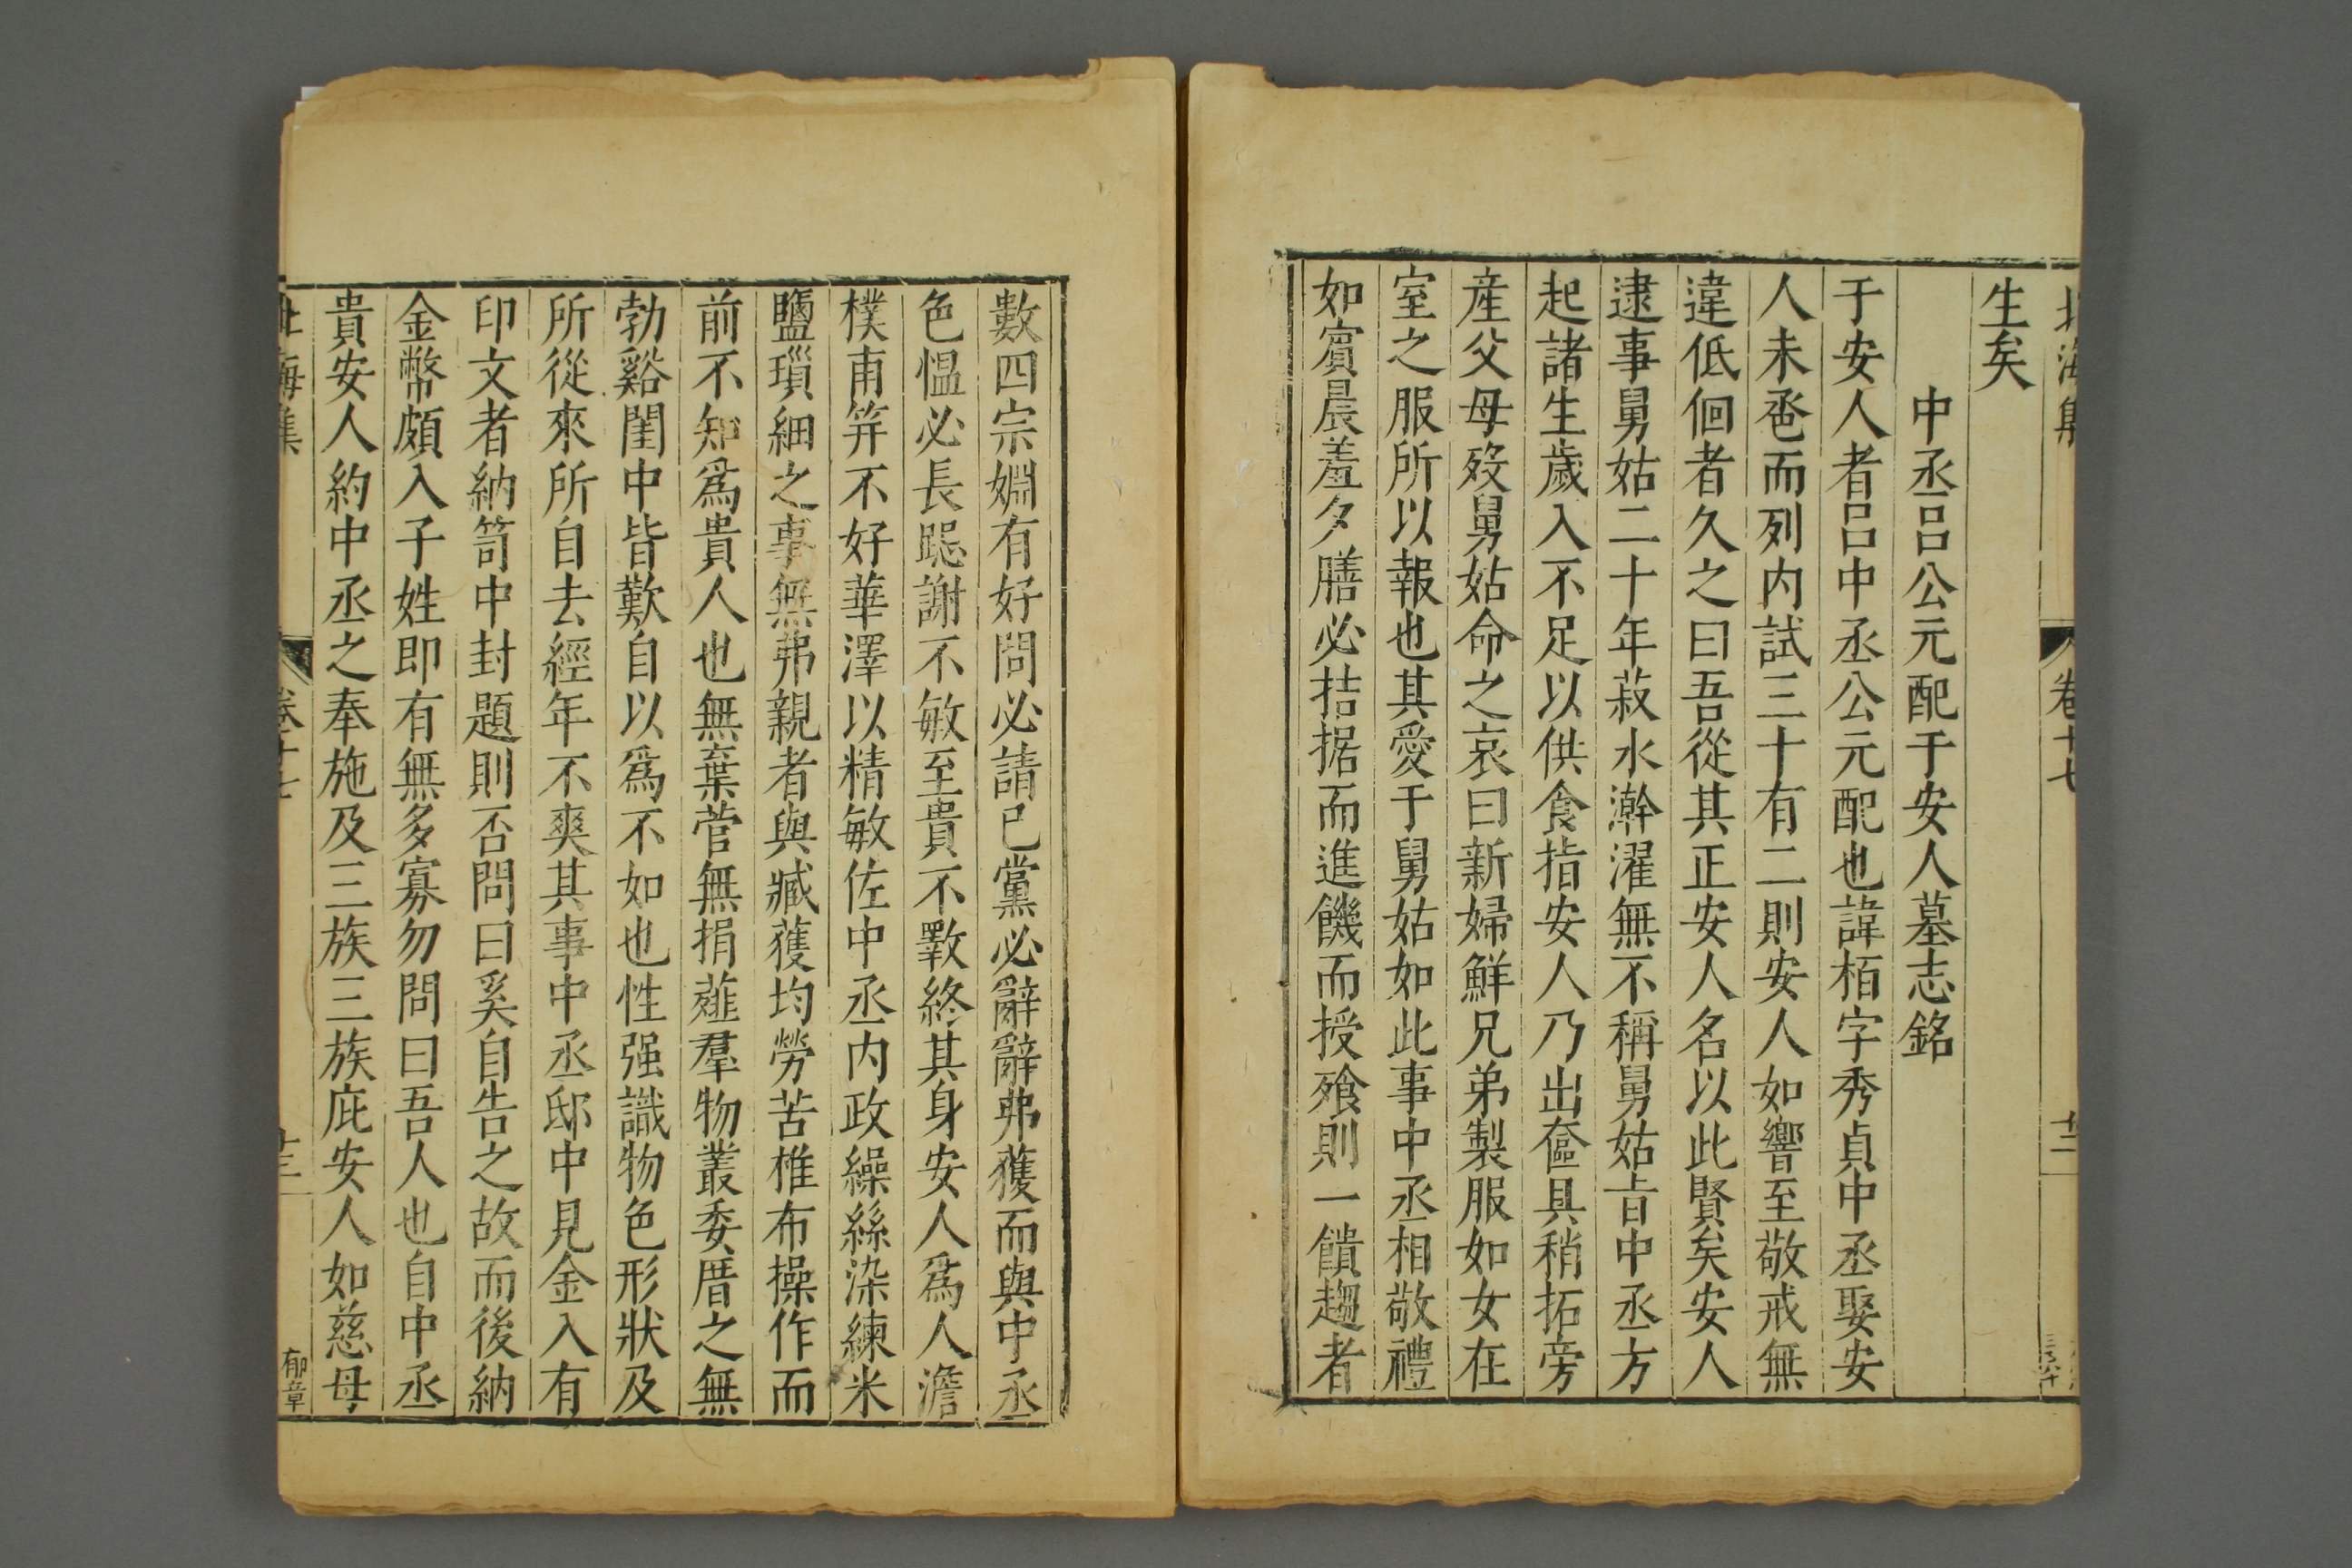 北海集 卷十七
生矣
中丞呂公元配于安人墓志銘
于安人者呂中丞公元配也諱栢字秀貞中丞娶安
人未卺而列内試三十有二則安人如響至敬戒無
違低佪者久之曰吾從其正安人名以此賢矣安人
逮事舅姑二十年菽水澣濯無不稱舅姑旨中丞方
起諸生歲入不足以供食指安人乃出奩具稍拓旁
産父母歿舅姑命之哀曰新婦鮮兄弟製服如女在
室之服所以報也其愛于舅姑如此事中丞相敬禮
如賓晨羞夕膳必拮据而進饑而授飱則一饋趨者
數四宗婣有好問必請已黨必辭辭弗獲而與中丞
色愠必長跽謝不敏至貴不斁終其身安人爲人澹
樸甫笄不好華澤以精敏佐中丞内政繰絲染練米
鹽瑣細之事無弗親者與臧獲均勞苦椎布操作而
前不知爲貴人也無棄菅無捐薤羣物叢委厝之無
勃谿閨中皆歎自以爲不如也性强識物色形狀及
所從來所自去經年不爽其事中丞邸中見金入有
印文者納笥中封題則否問曰奚自告之故而後納
金幣頗入子姓即有無多寡勿問曰吾人也自中丞
貴安人約中丞之奉施及三族三族庇安人如慈母
北海集 卷十七 郁章